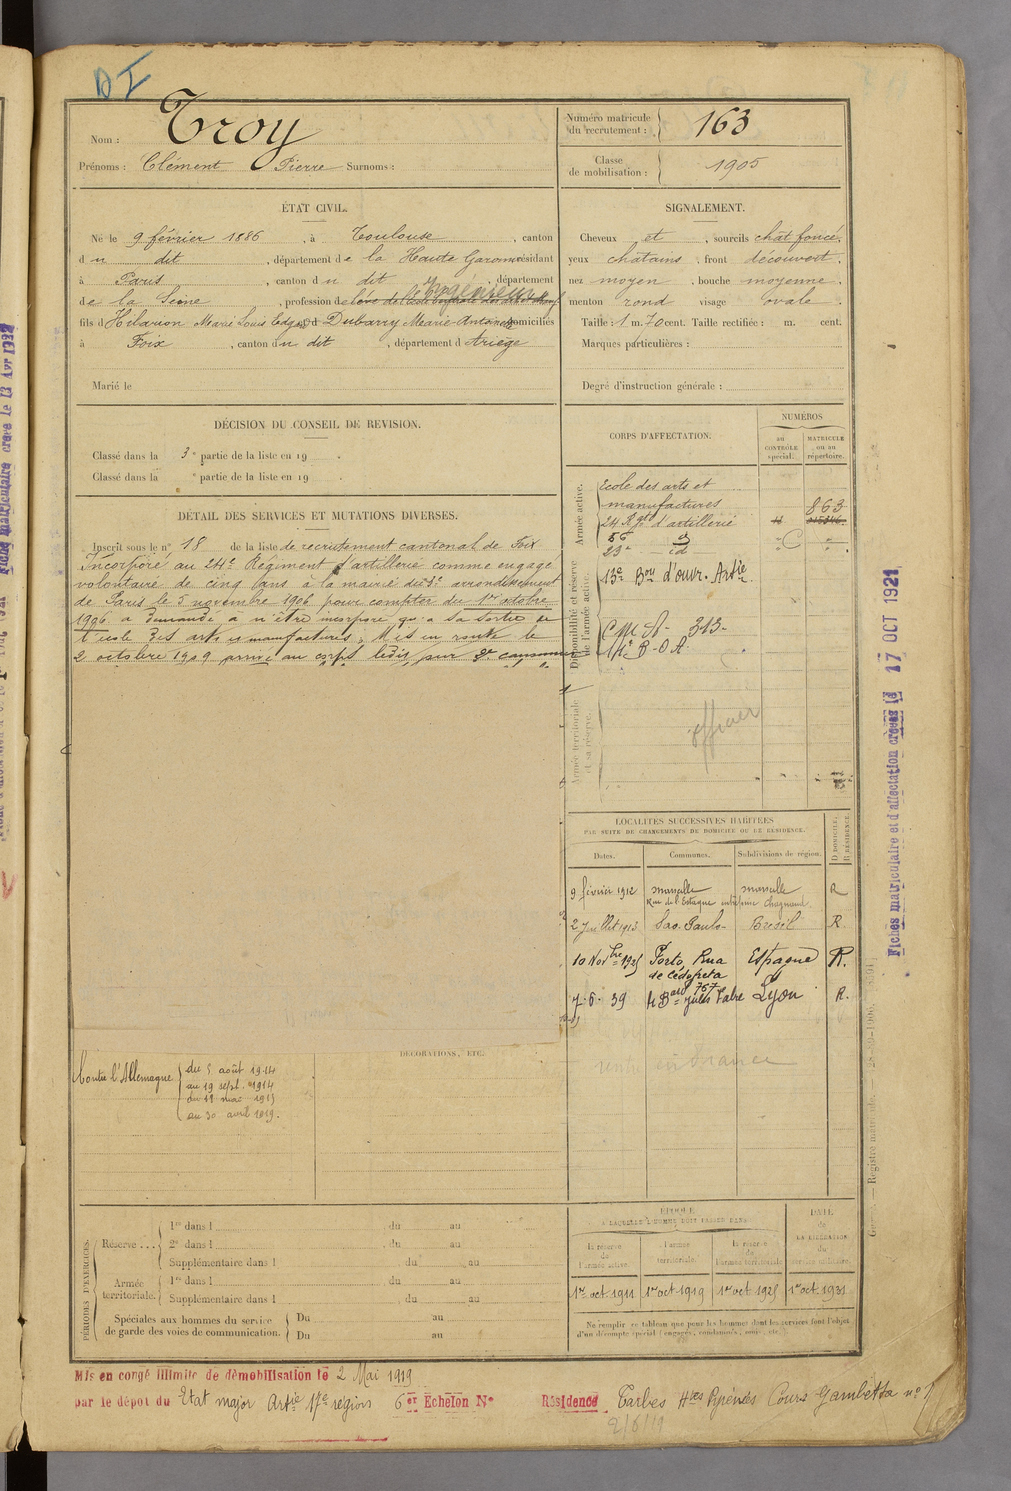 DI
Nom : Troy
Prénoms : Clément Pierre Surnoms :
Numéro matricule du recrutement : 163
Classe de mobilisation : 1905
ÉTAT CIVIL.
Né le 9 février 1886, à Toulouse, canton
d u dit, département de la Haute Garonne résidant
à Paris, canton du dit, département
de la Seine, profession de Ingénieur
fils d'Hilarion Marie Louis Edgar et d Dubarry Marie Antoinette domiciliés
à Foix, canton du dit, département d Ariège
Marié le
SIGNALEMENT.
Cheveux et, sourcils chat foncé,
yeux chatains, front découvert,
nez moyen, bouche moyenne,
menton rond visage ovale.
Taille : 1 m. 70 cent. Taille rectifiée : m. cent.
Marques particulières :
Degré d'instruction générale :
DÉCISION DU CONSEIL DE REVISION.
Classé dans la 3e partie de la liste en 19 .
Classé dans la e partie de la liste en 19 .
DÉTAIL DES SERVICES ET MUTATIONS DIVERSES.
Inscrit sous le n° 18 de la liste de recrutement cantonal de Foix
Incorporé au 24e Régiment d'artillerie comme engagé
volontaire de cinq ans à la mairie du 3e arrondissement
de Paris le 5 novembre 1906 pour compter du 1er octobre
1906 a demandé à n'être incorporé qu'à sa sortie de
l'école des arts et manufactures. Mis en route le
2 octobre 1909 arrivé au corps ledit jour 2e canonnier
CORPS D'AFFECTATION.
NUMÉROS
au CONTRÔLE spécial.
MATRICULE ou au répertoire.
Armée active.
Ecole des arts et
manufactures 863
24 Rgt d'artillerie
56 d
23e id
Disponibilité et réserve de l'armée active.
13e Bon d'ouvr. Artie
313
Armée territoriale et sa réserve.
officier
LOCALITÉS SUCCESSIVES HABITÉES
PAR SUITE DE CHANGEMENTS DE DOMICILE OU DE RÉSIDENCE.
Dates. Communes. Subdivisions de région. D DOMICILE. R RÉSIDENCE.
9 février 1912 Marseille Marseille R
Rue de l'Estaque
2 Juillet 1913 Sao-Paulo Brésil R.
10 Novbre 1925 Porto, Rua Espagne R.
de Cédofeita
767
7-6-39 14 Bard Jules Favre Lyon R.
rentré en France
DÉCORATIONS, ETC.
Contre l'Allemagne
du 5 août 1914
au 19 sept. 1914
du 11 mai 1915
au 30 avril 1919.
PÉRIODES D'EXERCICES.
Réserve ...
1re dans l du au
2e dans l du au
Supplémentaire dans l du au
Armée territoriale.
1re dans l du au
Supplémentaire dans l du au
Spéciales aux hommes du service de garde des voies de communication.
Du au
Du au
ÉPOQUE
À LAQUELLE L'HOMME DOIT PASSER DANS
la réserve de l'armée active.
l'armée territoriale.
la réserve de l'armée territoriale
DATE de LA LIBÉRATION du service militaire.
1er oct. 1911 1er oct 1919 1er oct 1925 1er oct. 1931
Ne remplir ce tableau que pour les hommes dont les services font l'objet
d'un décompte spécial (engagés, condamnés, omis, etc.)
Mis en congé illimité de démobilisation le 2 Mai 1919
par le dépôt du Etat major Artie 17e région 6er Echelon N° Résidence Tarbes Htes Pyrénées Cours Gambetta n° 1
2/6/19
Fiches matriculaire et d'affectation créées le 17 OCT 1921